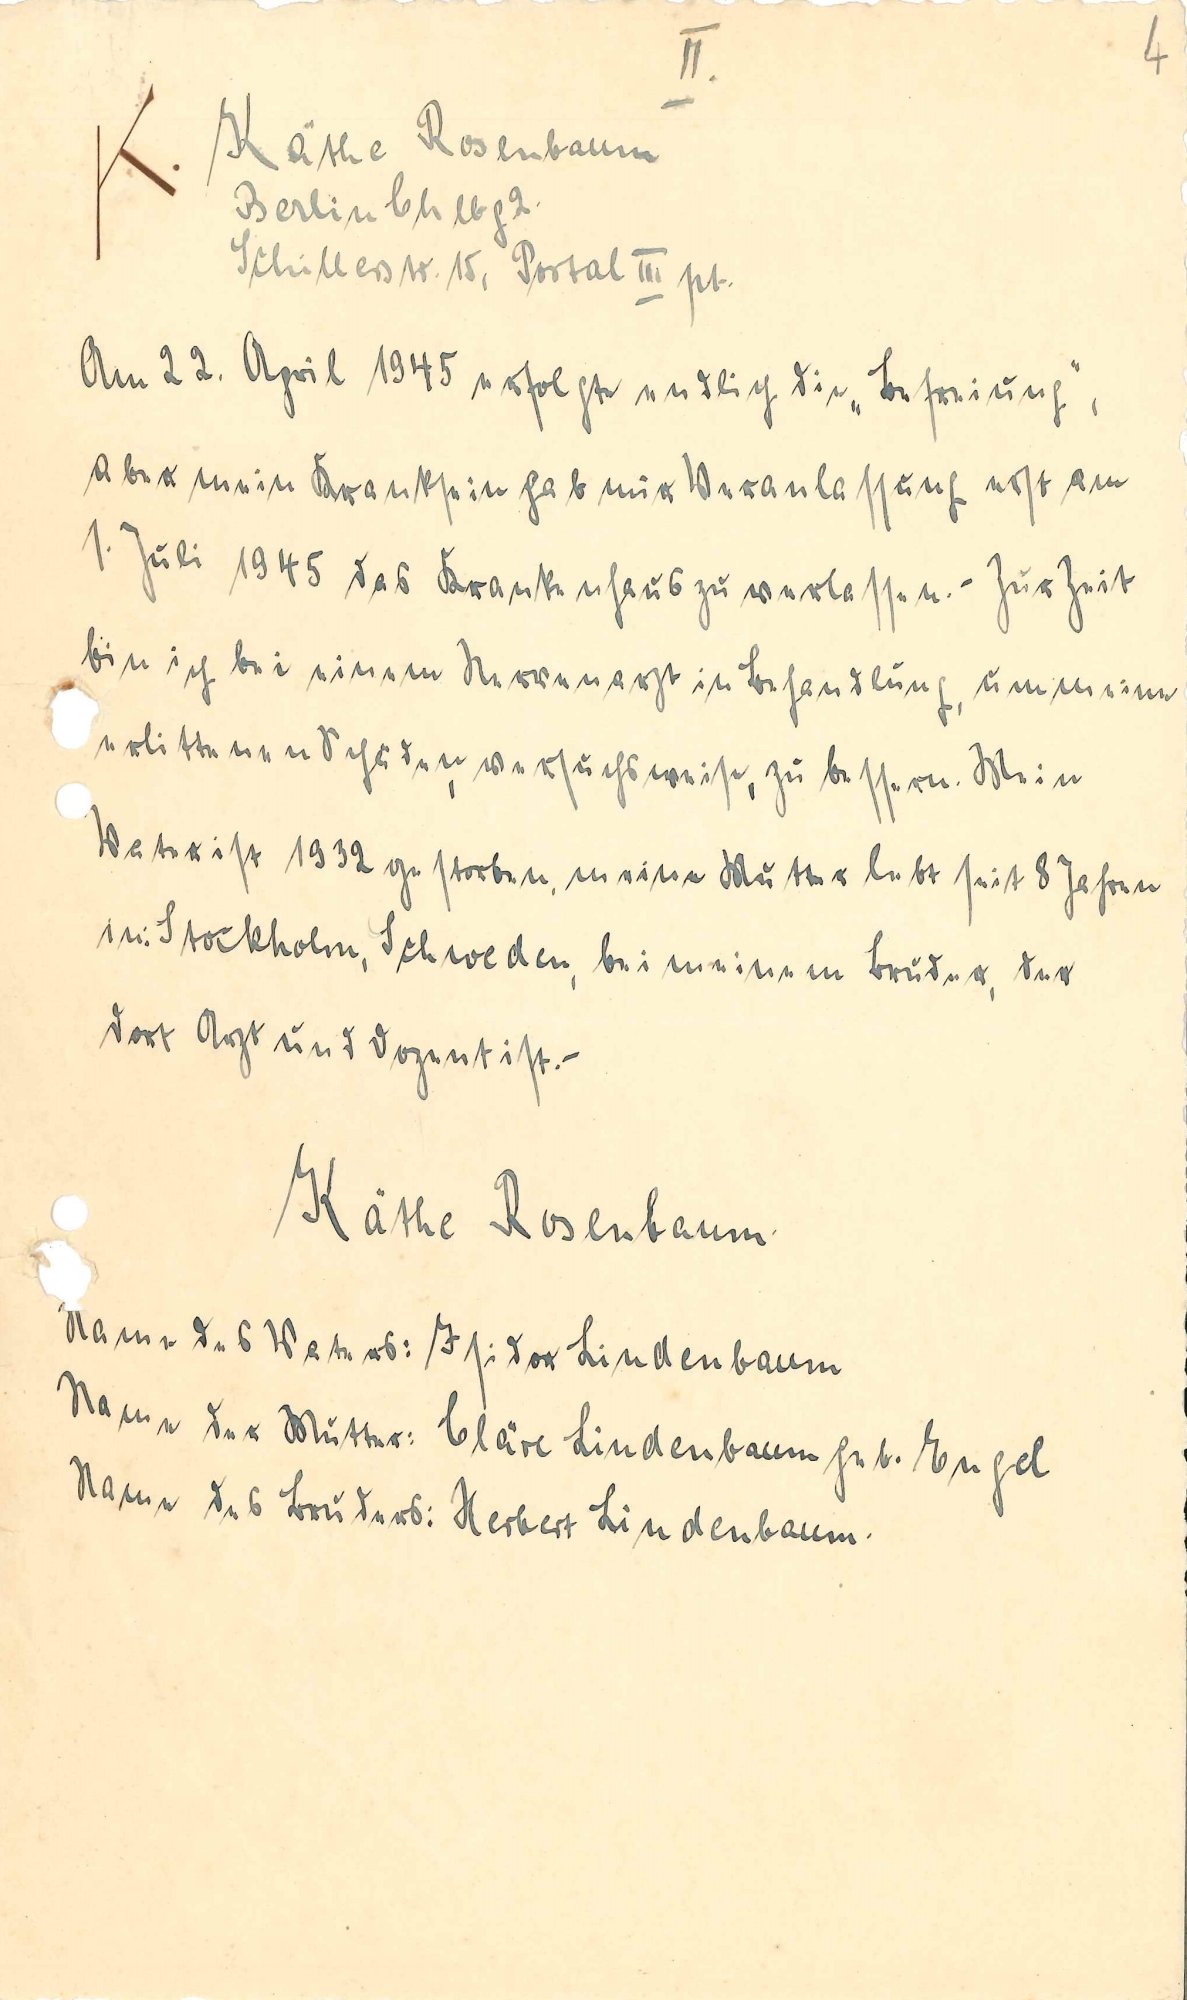 II.
4
K.
Käthe Rosenbaum
Berlin Chlbg 2.
Schillerstr. 15, Portal III pt.
Am 22. April 1945 erfolgte endlich die „Befreiung",
aber mein Kranksein gab mir Veranlassung erst am
1. Juli 1945 das Krankenhaus zu verlassen. - Zur Zeit
bin ich bei einem Nervenarzt in Behandlung, um meine
erlittenen Schäden, versuchsweise, zu bessern. Mein
Vater ist 1932 gestorben, meine Mutter lebt seit 8 Jahren
in: Stockholm, Schweden, bei meinem Bruder, der
dort Arzt und Dozent ist. -
Käthe Rosenbaum.
Name des Vaters: Isidor Lindenbaum
Name der Mutter: Cläre Lindenbaum geb. Engel
Name des Bruders: Herbert Lindenbaum.